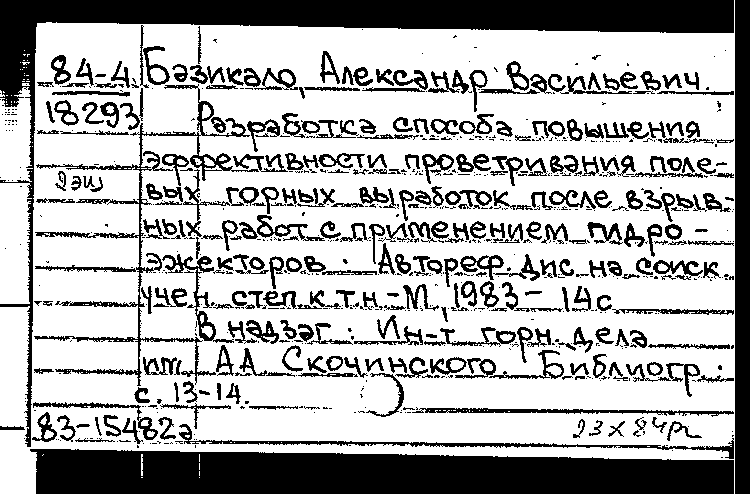 84-4. Базикало, Александр Васильевич.
18293 Разработка способа повышения
эффективности проветривания поле-
2экз вых горных выработок после взрыв-
ных работ с применением гидро-
эжекторов. Автореф. дис. на соиск.
учен. степ. к.т.н. - М., 1983 - 14 с.
В надзаг.: Ин-т горн. дела
им. А.А. Скочинского. Библиогр.:
с. 13-14.
83-15482а